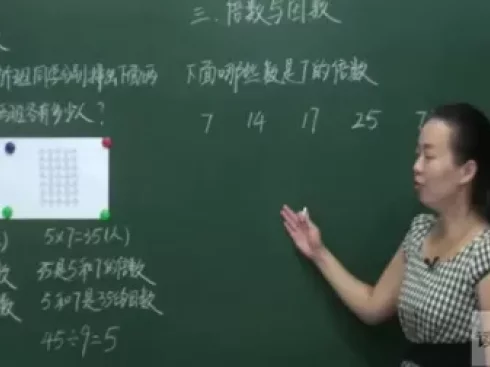 三、倍数与因数
人
班同学分别排出下面两
班各有多少人？
下面哪些数是7的倍数
7 14 17 25 7
5×7=35(人)
数 35是5和7的倍数
数 5和7是35的因数
45÷9=5